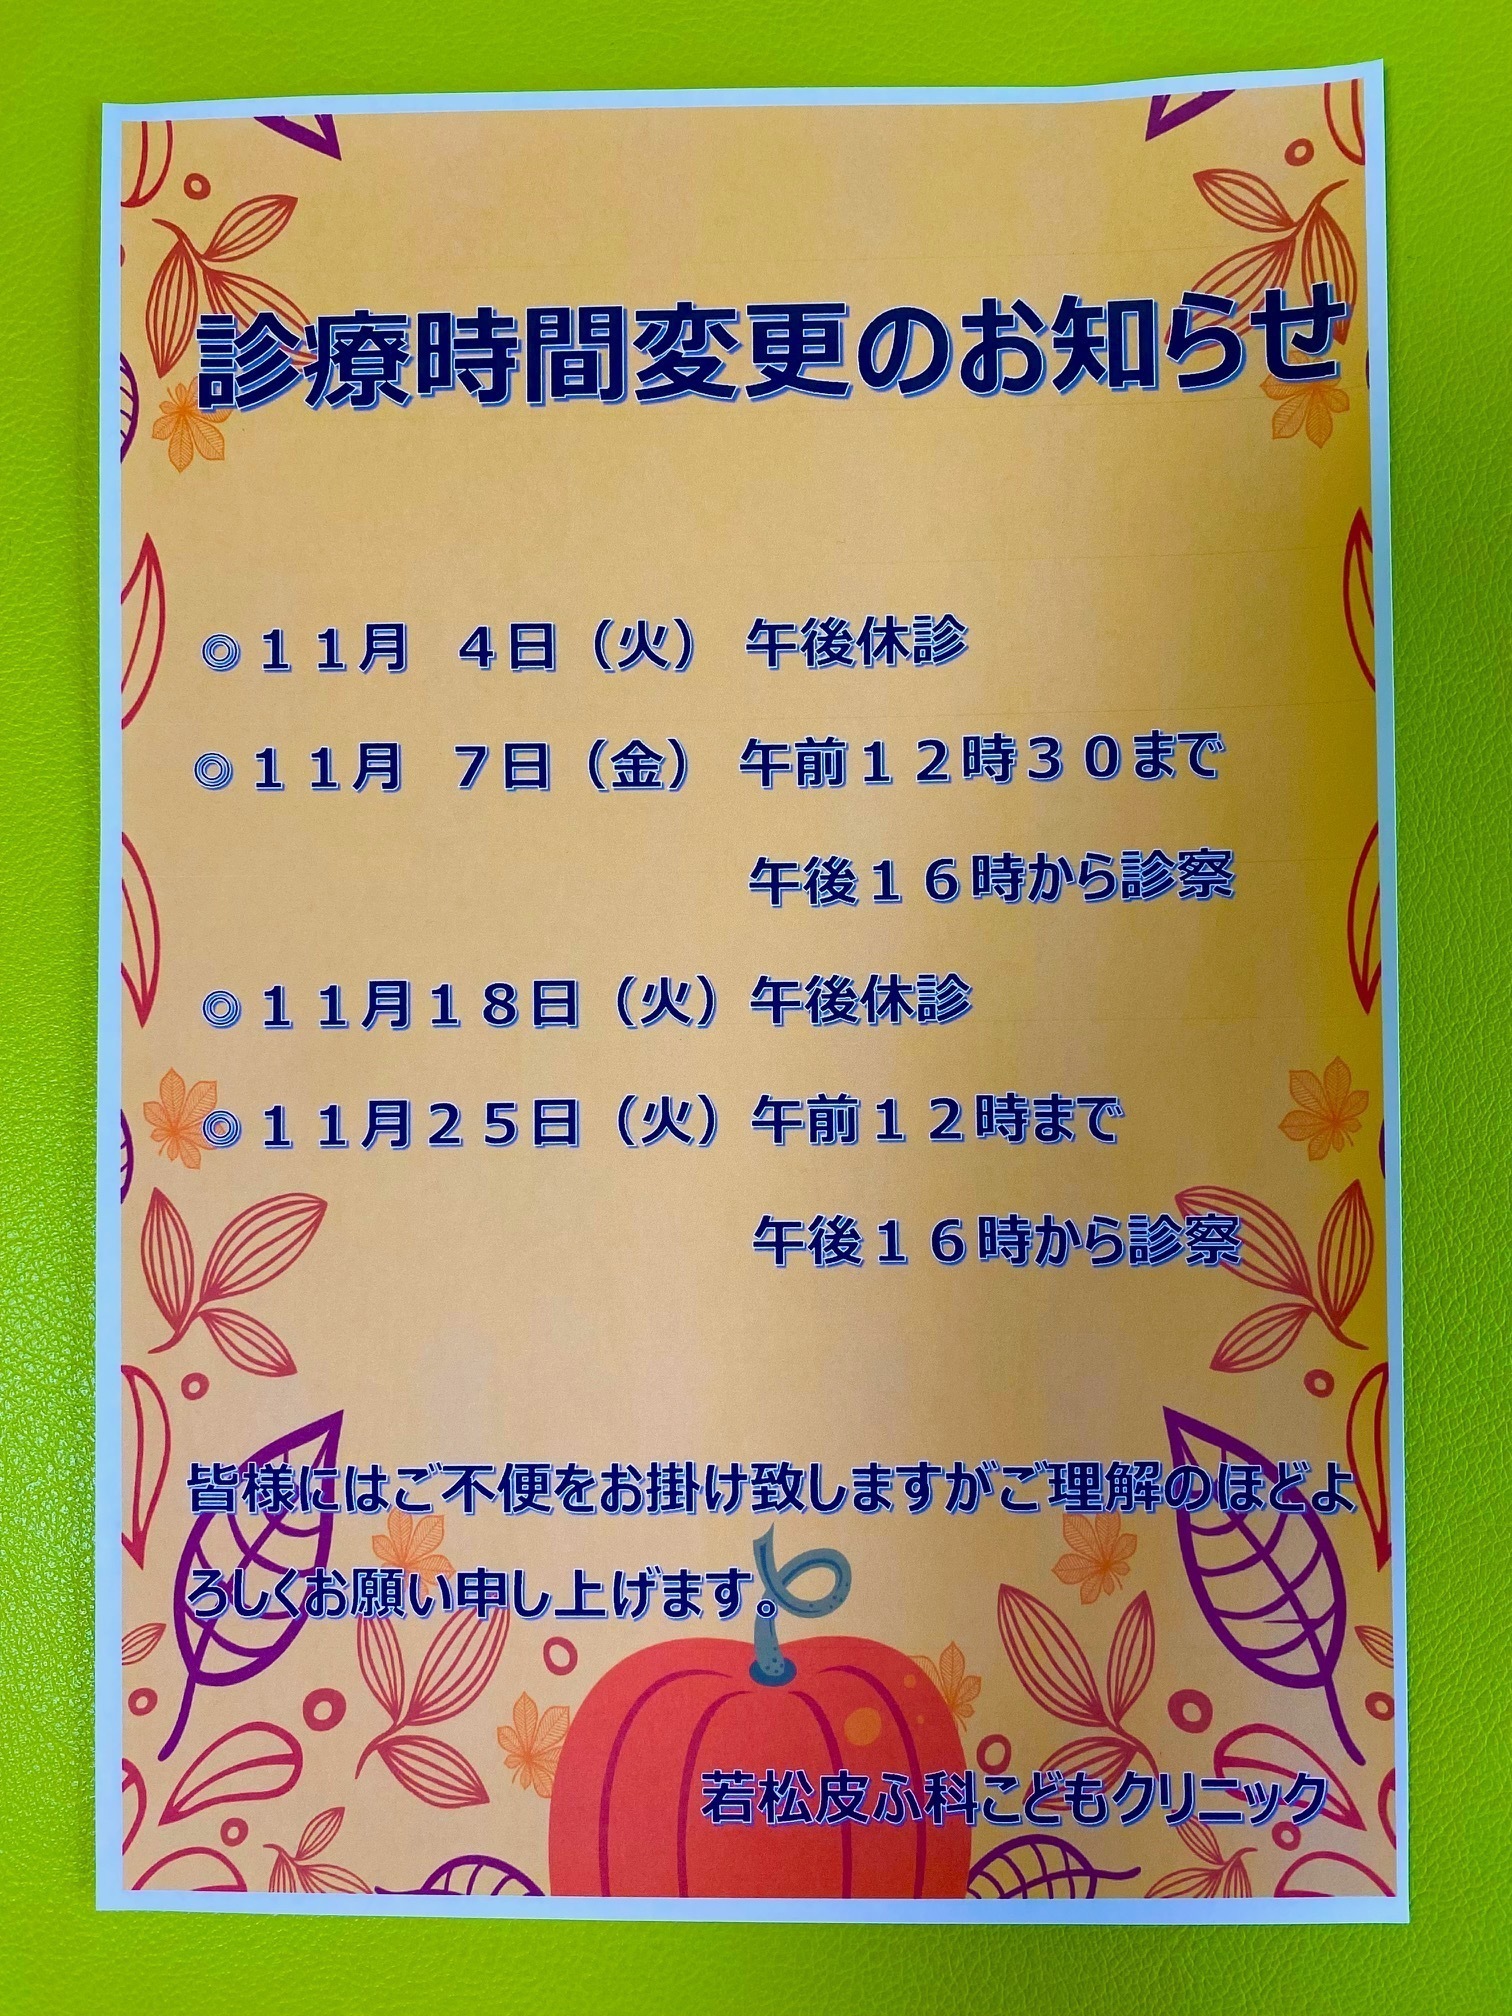 診療時間変更のお知らせ
◎１１月　４日（火）　午後休診
◎１１月　７日（金）　午前１２時３０まで
午後１６時から診察
◎１１月１８日（火）午後休診
◎１１月２５日（火）午前１２時まで
午後１６時から診察
皆様にはご不便をお掛け致しますがご理解のほどよ
ろしくお願い申し上げます。
若松皮ふ科こどもクリニック